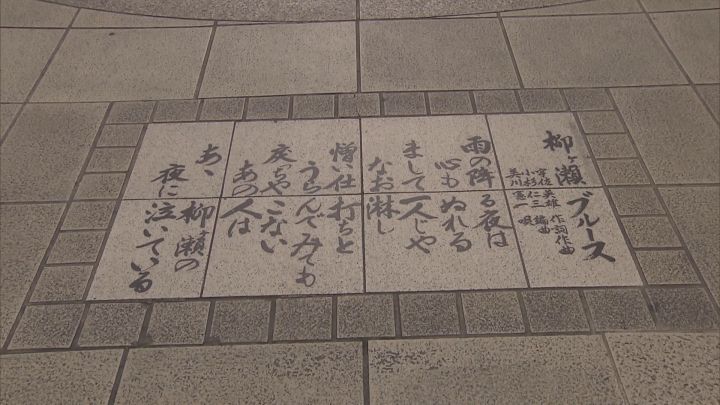 柳ヶ瀬ブルース
宇佐英雄 作詞作曲
小杉仁三 編曲
美川憲一 唄
雨の降る夜は
心もぬれる
まして一人じゃ
なお淋し
憎い仕打ちと
うらんでみても
戻っちゃこない
あの人は
あゝ柳ヶ瀬の
夜に泣いている